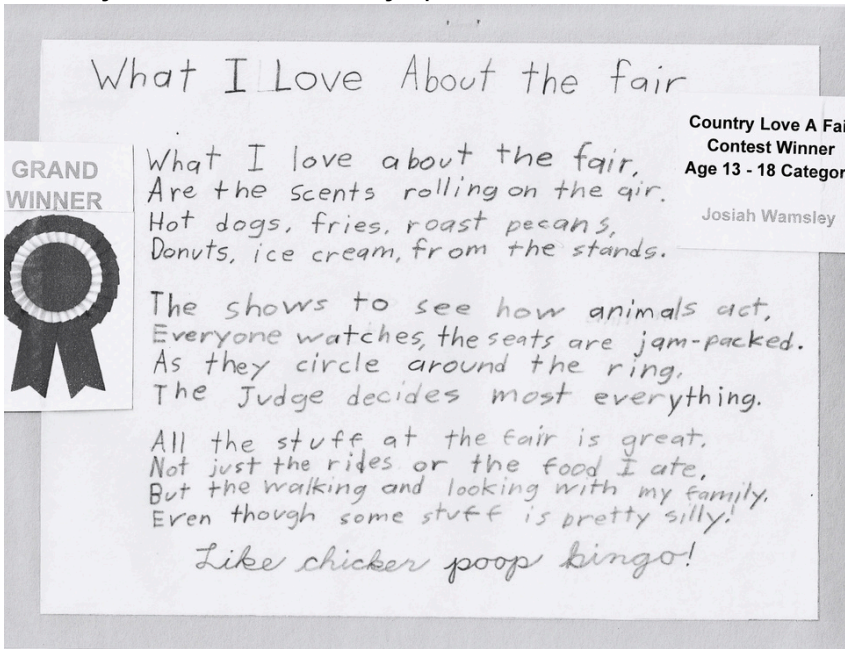 What I Love About the fair
Country Love A Fai
Contest Winner
Age 13 - 18 Categor
Josiah Wamsley
GRAND
WINNER
What I love about the fair,
Are the scents rolling on the air.
Hot dogs, fries, roast pecans,
Donuts, ice cream, from the stands.
The shows to see how animals act,
Everyone watches, the seats are jam-packed.
As they circle around the ring,
The Judge decides most everything.
All the stuff at the fair is great,
Not just the rides or the food I ate,
But the walking and looking with my family,
Even though some stuff is pretty silly!
Like chicken poop bingo!